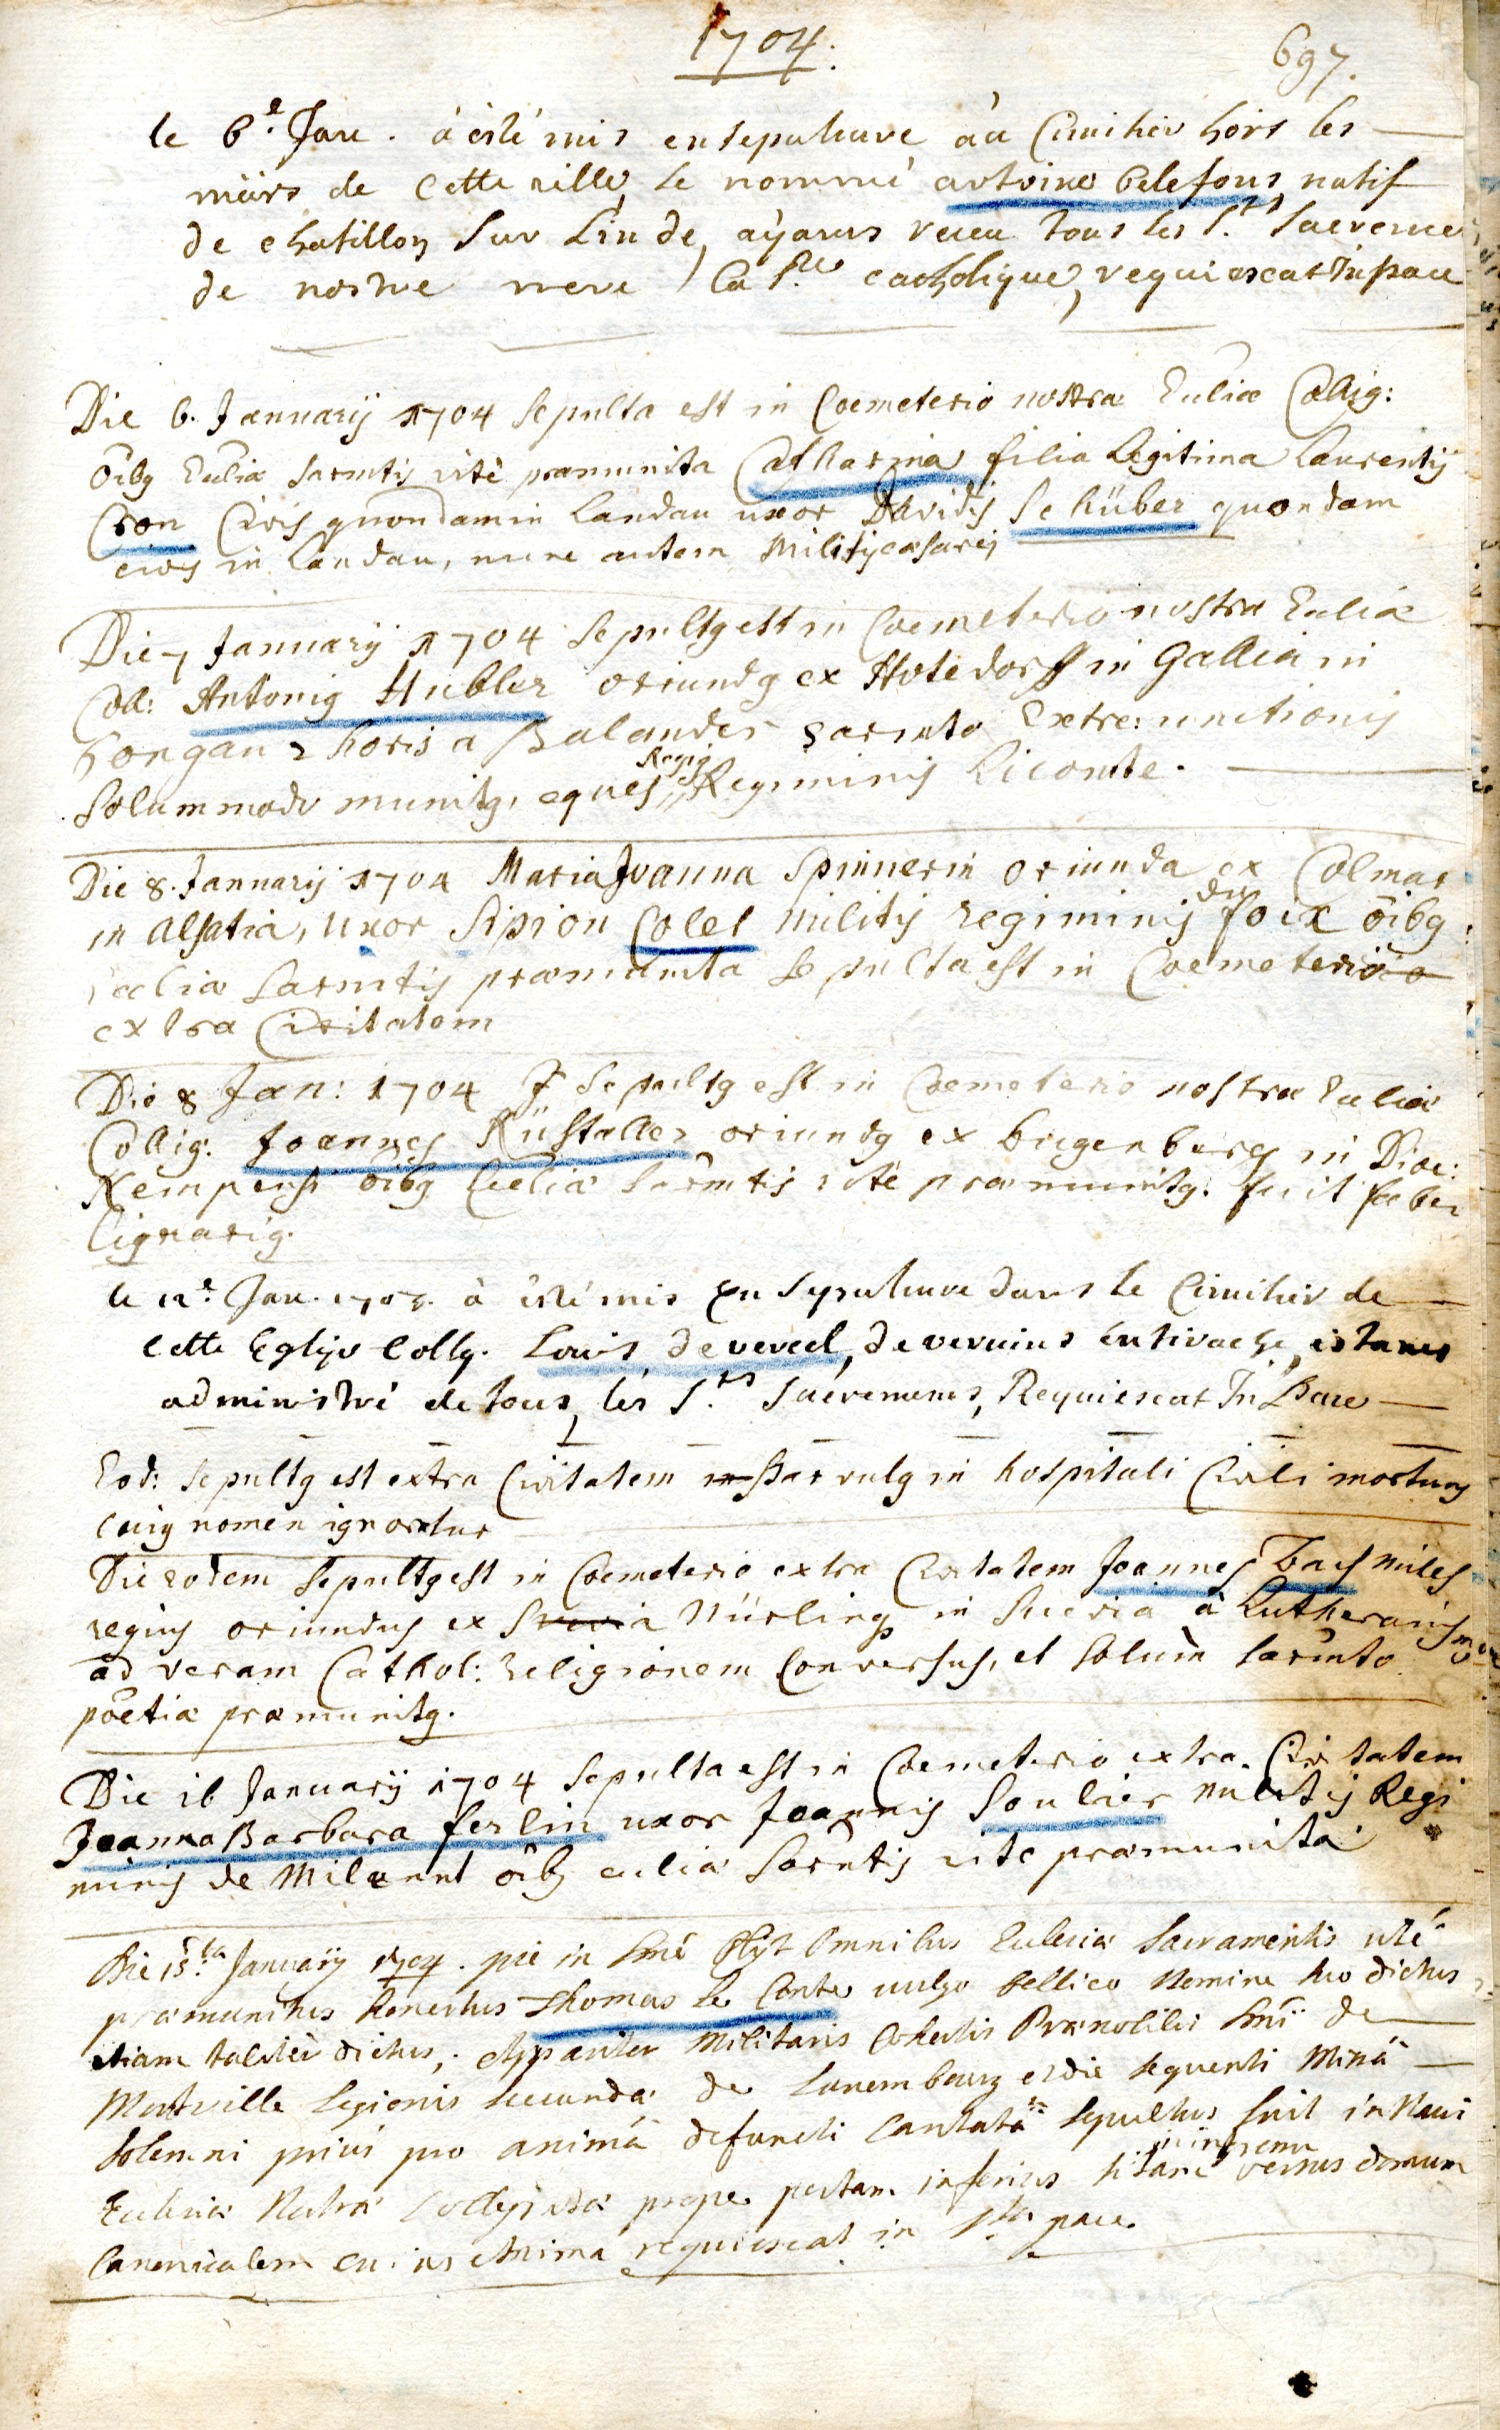 1704.
697.
le 6.e Janu. à esté mis en sepulture àu Cimitier hors les
mürs de Cette ville, le nommé antoine belefons, natif
de chatillon Sur Linde, ayants receu tous les S.ts Sacremen
de nostre mere la S.te catholique, requiescat In pace
Die 6. Januarij 1704 sepulta est in Coemeterio nostræ Eccliæ Collig:
oibg Eccliæ sacmtis ritè præmunita Catharina filia legitima Laurentij
Cron Civis quondam in Landau uxor Davidis Schüber quondam
civis in Landau, nunc autem Militis cæsarej
Die 7 Januarij 1704 Sepultg est in Coemeterio nostræ Eccliæ
Coll: Antonig Hubler oriundg ex Hotedorff in Gallia in
horis a Sacmto Extre: unctionis
Solummodo munitg, eques Regig Regiminis Licomte.
Die 8. Januarij 1704 Maria Joanna Spinnerin oriunda ex Colmar
in Alsatia, uxor Sipion Colet Militis regiminis du foix oibg
eccliæ Sacmtis præmunita Sepulta est in Coemeterio
extra Civitatem
Die 8 Jan: 1704 Sepultg est in Coemeterio nostræ Eccliæ
Collig: Joannes Rüstaller oriundg ex bregenberg in Dioe:
Kempensi oibg Eccliæ Sacmtis ritè præmunitg. fuit faber
lignarig.
le 12.e Janu. 1704. à èsté mis en Sepulture dans le Cimitier de
Cette Eglise Collg. Louis de vercel, de vervins en tirache, estants
administré de tous les S.ts Sacremens, Requiescat In Pace
Eod: Sepultg est extra Civitatem Parvulg in hospitali Civili mortuus
Cuig nomen ignoratur
Die eodem Sepultg est in Coemeterio extra Civitatem Joannes Bach miles
regius oriundus ex Nürling in Suevia à Lutheranismo
ad veram Cathol: religionem Conversus, et Solum Sacmto
poetiæ præmunitg.
Die 16 Januarij 1704 Sepulta est in Coemeterio extra Civitatem
Joanna Barbara ferlin uxor Joannis Soulier militis Regi
minis de Milannt oibg eccliæ Sacmtis rite præmunita
Die 15.ta Januarij 1704. pie in Omnibus Ecclesiæ Sacramentis rité
præmunitus honestus Thomas le Conte vulgo bellico Nomine suo dictus
etiam taliter dictus; Appariter Militaris Cohortis Prænobilis Dni de
Montville Legionis secundæ de Luxembourg et die sequenti Missâ
Solemni priùs pro animâ defuncti Cantatâ sepultus fuit in Navi
Ecclesiæ Nostræ Collegiatæ prope portam inferius sitam in ingressu versus domum
Canonicalem cuius Anima requiescat in S.ta pace.